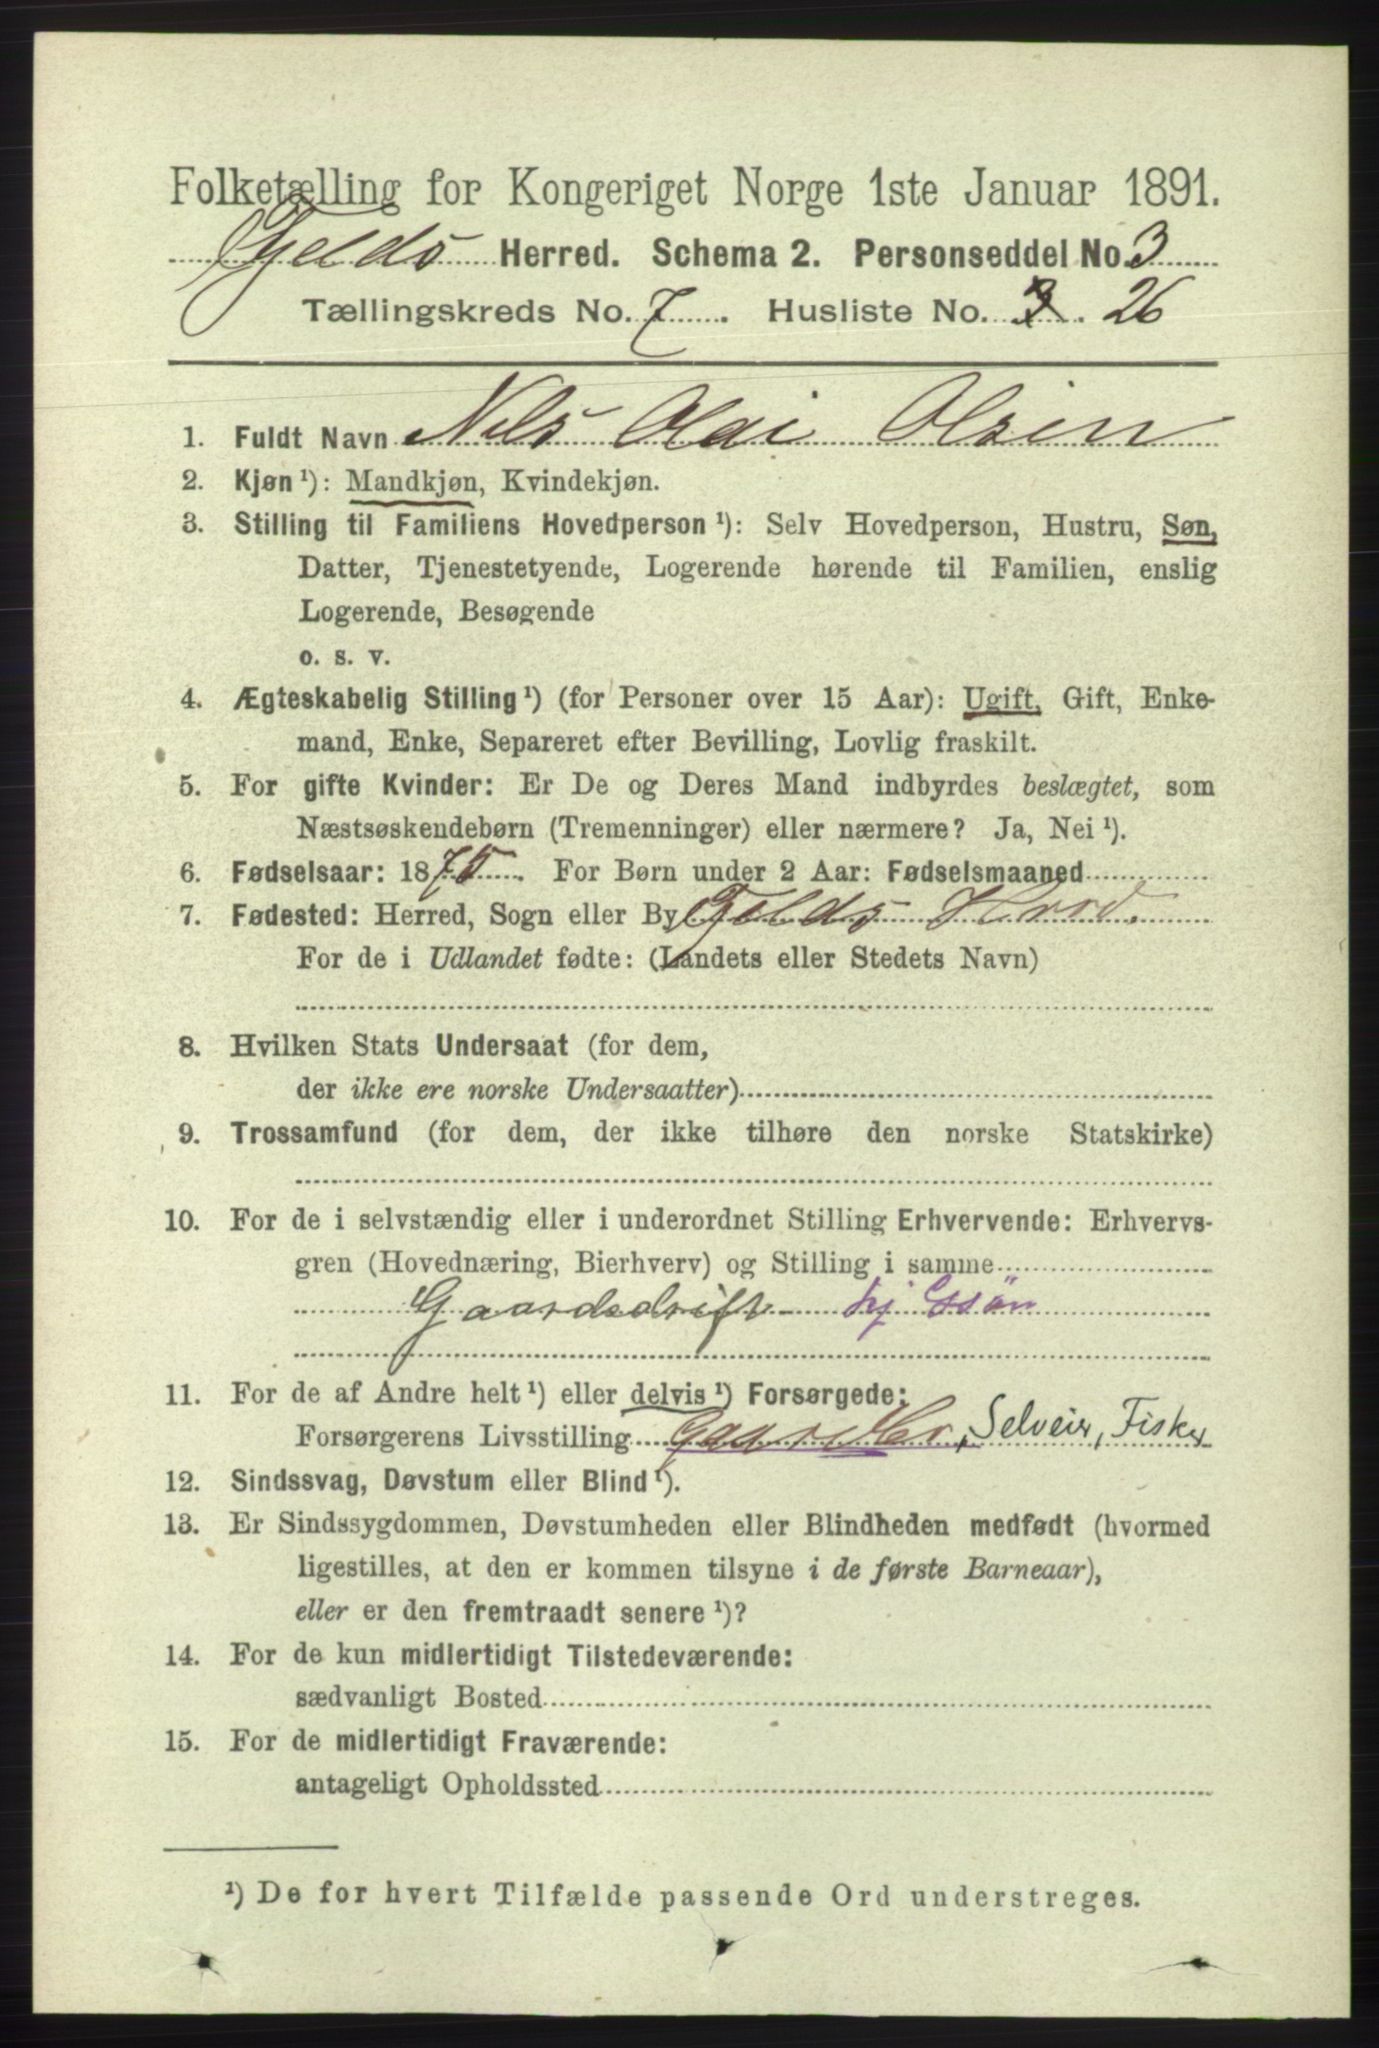 Folketælling for Kongeriget Norge 1ste Januar 1891.
Gjeldö Herred. Schema 2. Personseddel No. 3
Tællingskreds No. 7. Husliste No. 3. 26
1. Fuldt Navn Nels Olai Olsen
2. Kjøn ¹): Mandkjøn, Kvindekjøn.
3. Stilling til Familiens Hovedperson ¹): Selv Hovedperson, Hustru, Søn,
Datter, Tjenestetyende, Logerende hørende til Familien, enslig
Logerende, Besøgende
o. s. v.
4. Ægteskabelig Stilling ¹) (for Personer over 15 Aar): Ugift, Gift, Enke-
mand, Enke, Separeret efter Bevilling, Lovlig fraskilt.
5. For gifte Kvinder: Er De og Deres Mand indbyrdes beslægtet, som
Næstsøskendebørn (Tremenninger) eller nærmere? Ja, Nei ¹).
6. Fødselsaar: 1875. For Børn under 2 Aar: Fødselsmaaned
7. Fødested: Herred, Sogn eller By Gjeldö
For de i Udlandet fødte: (Landets eller Stedets Navn)
8. Hvilken Stats Undersaat (for dem,
der ikke ere norske Undersaatter)
9. Trossamfund (for dem, der ikke tilhøre den norske Statskirke)
10. For de i selvstændig eller i underordnet Stilling Erhvervende: Erhvervs-
gren (Hovednæring, Bierhverv) og Stilling i samme
Gaardsdrift hj Gsön
11. For de af Andre helt ¹) eller delvis ¹) Forsørgede:
Forsørgerens Livsstilling Gaardbr, Selveier, Fisker
12. Sindssvag, Døvstum eller Blind ¹).
13. Er Sindssygdommen, Døvstumheden eller Blindheden medfødt (hvormed
ligestilles, at den er kommen tilsyne i de første Barneaar),
eller er den fremtraadt senere ¹)?
14. For de kun midlertidigt Tilstedeværende:
sædvanligt Bosted
15. For de midlertidigt Fraværende:
antageligt Opholdssted
¹) De for hvert Tilfælde passende Ord understreges.